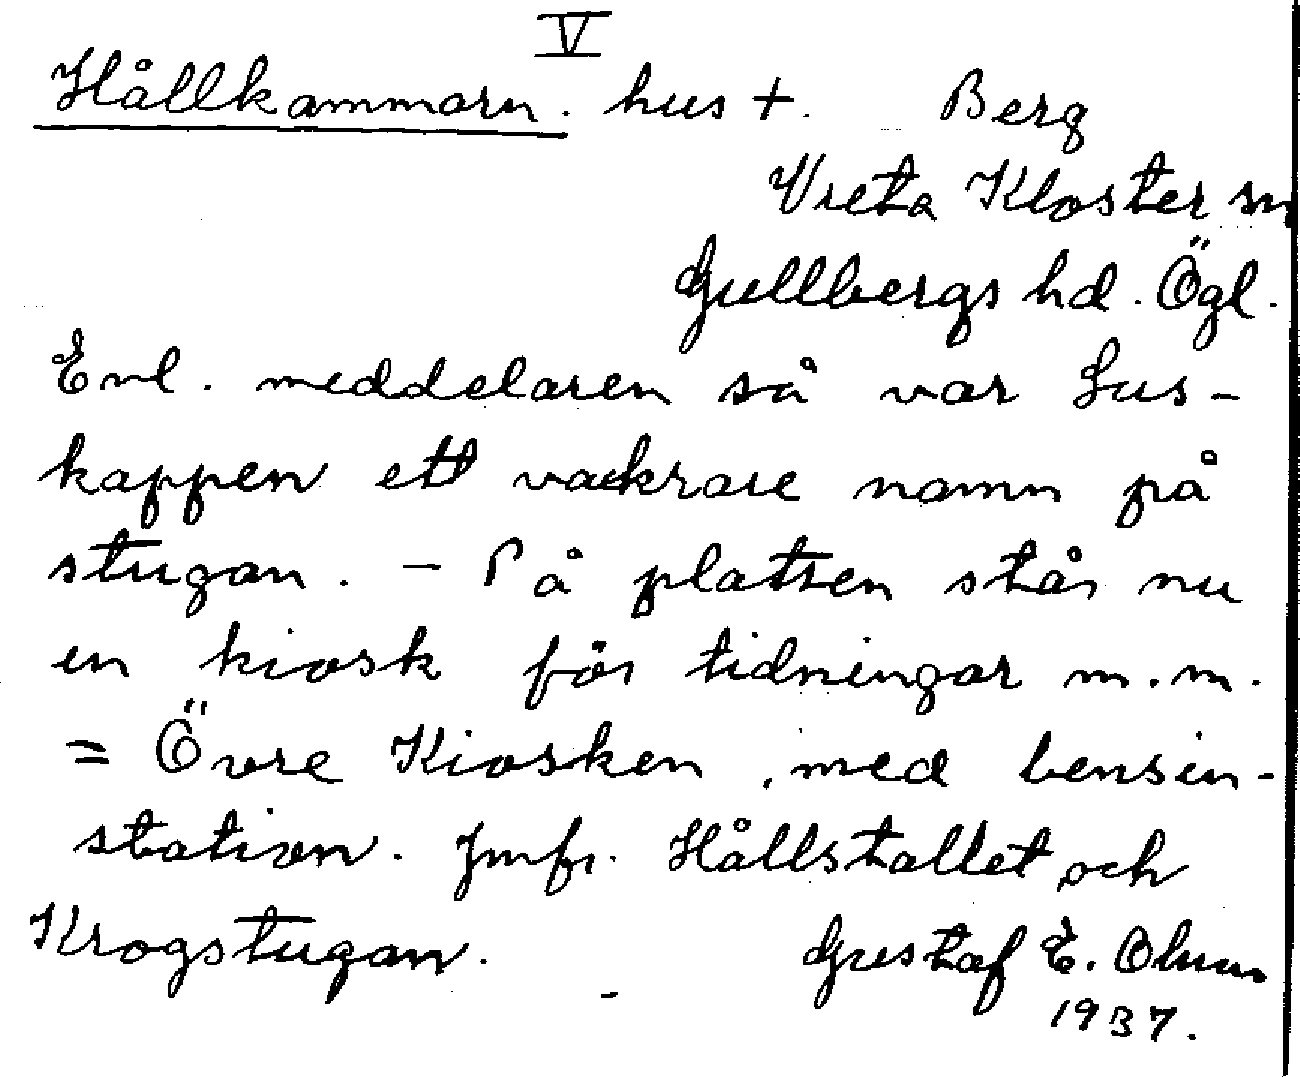 V
Hållkammarn. hus +. Berg
Vreta Kloster sn
Gullbergs hd. Ögl.
Enl. meddelaren så var Lus-
kappen ett vackrare namn på
stugan. – På platsen står nu
en kiosk för tidningar m.m.
= Övre Kiosken, med bensin-
station. Jmfr. Hållstallet och
Krogstugan. Gustaf E.
1937.